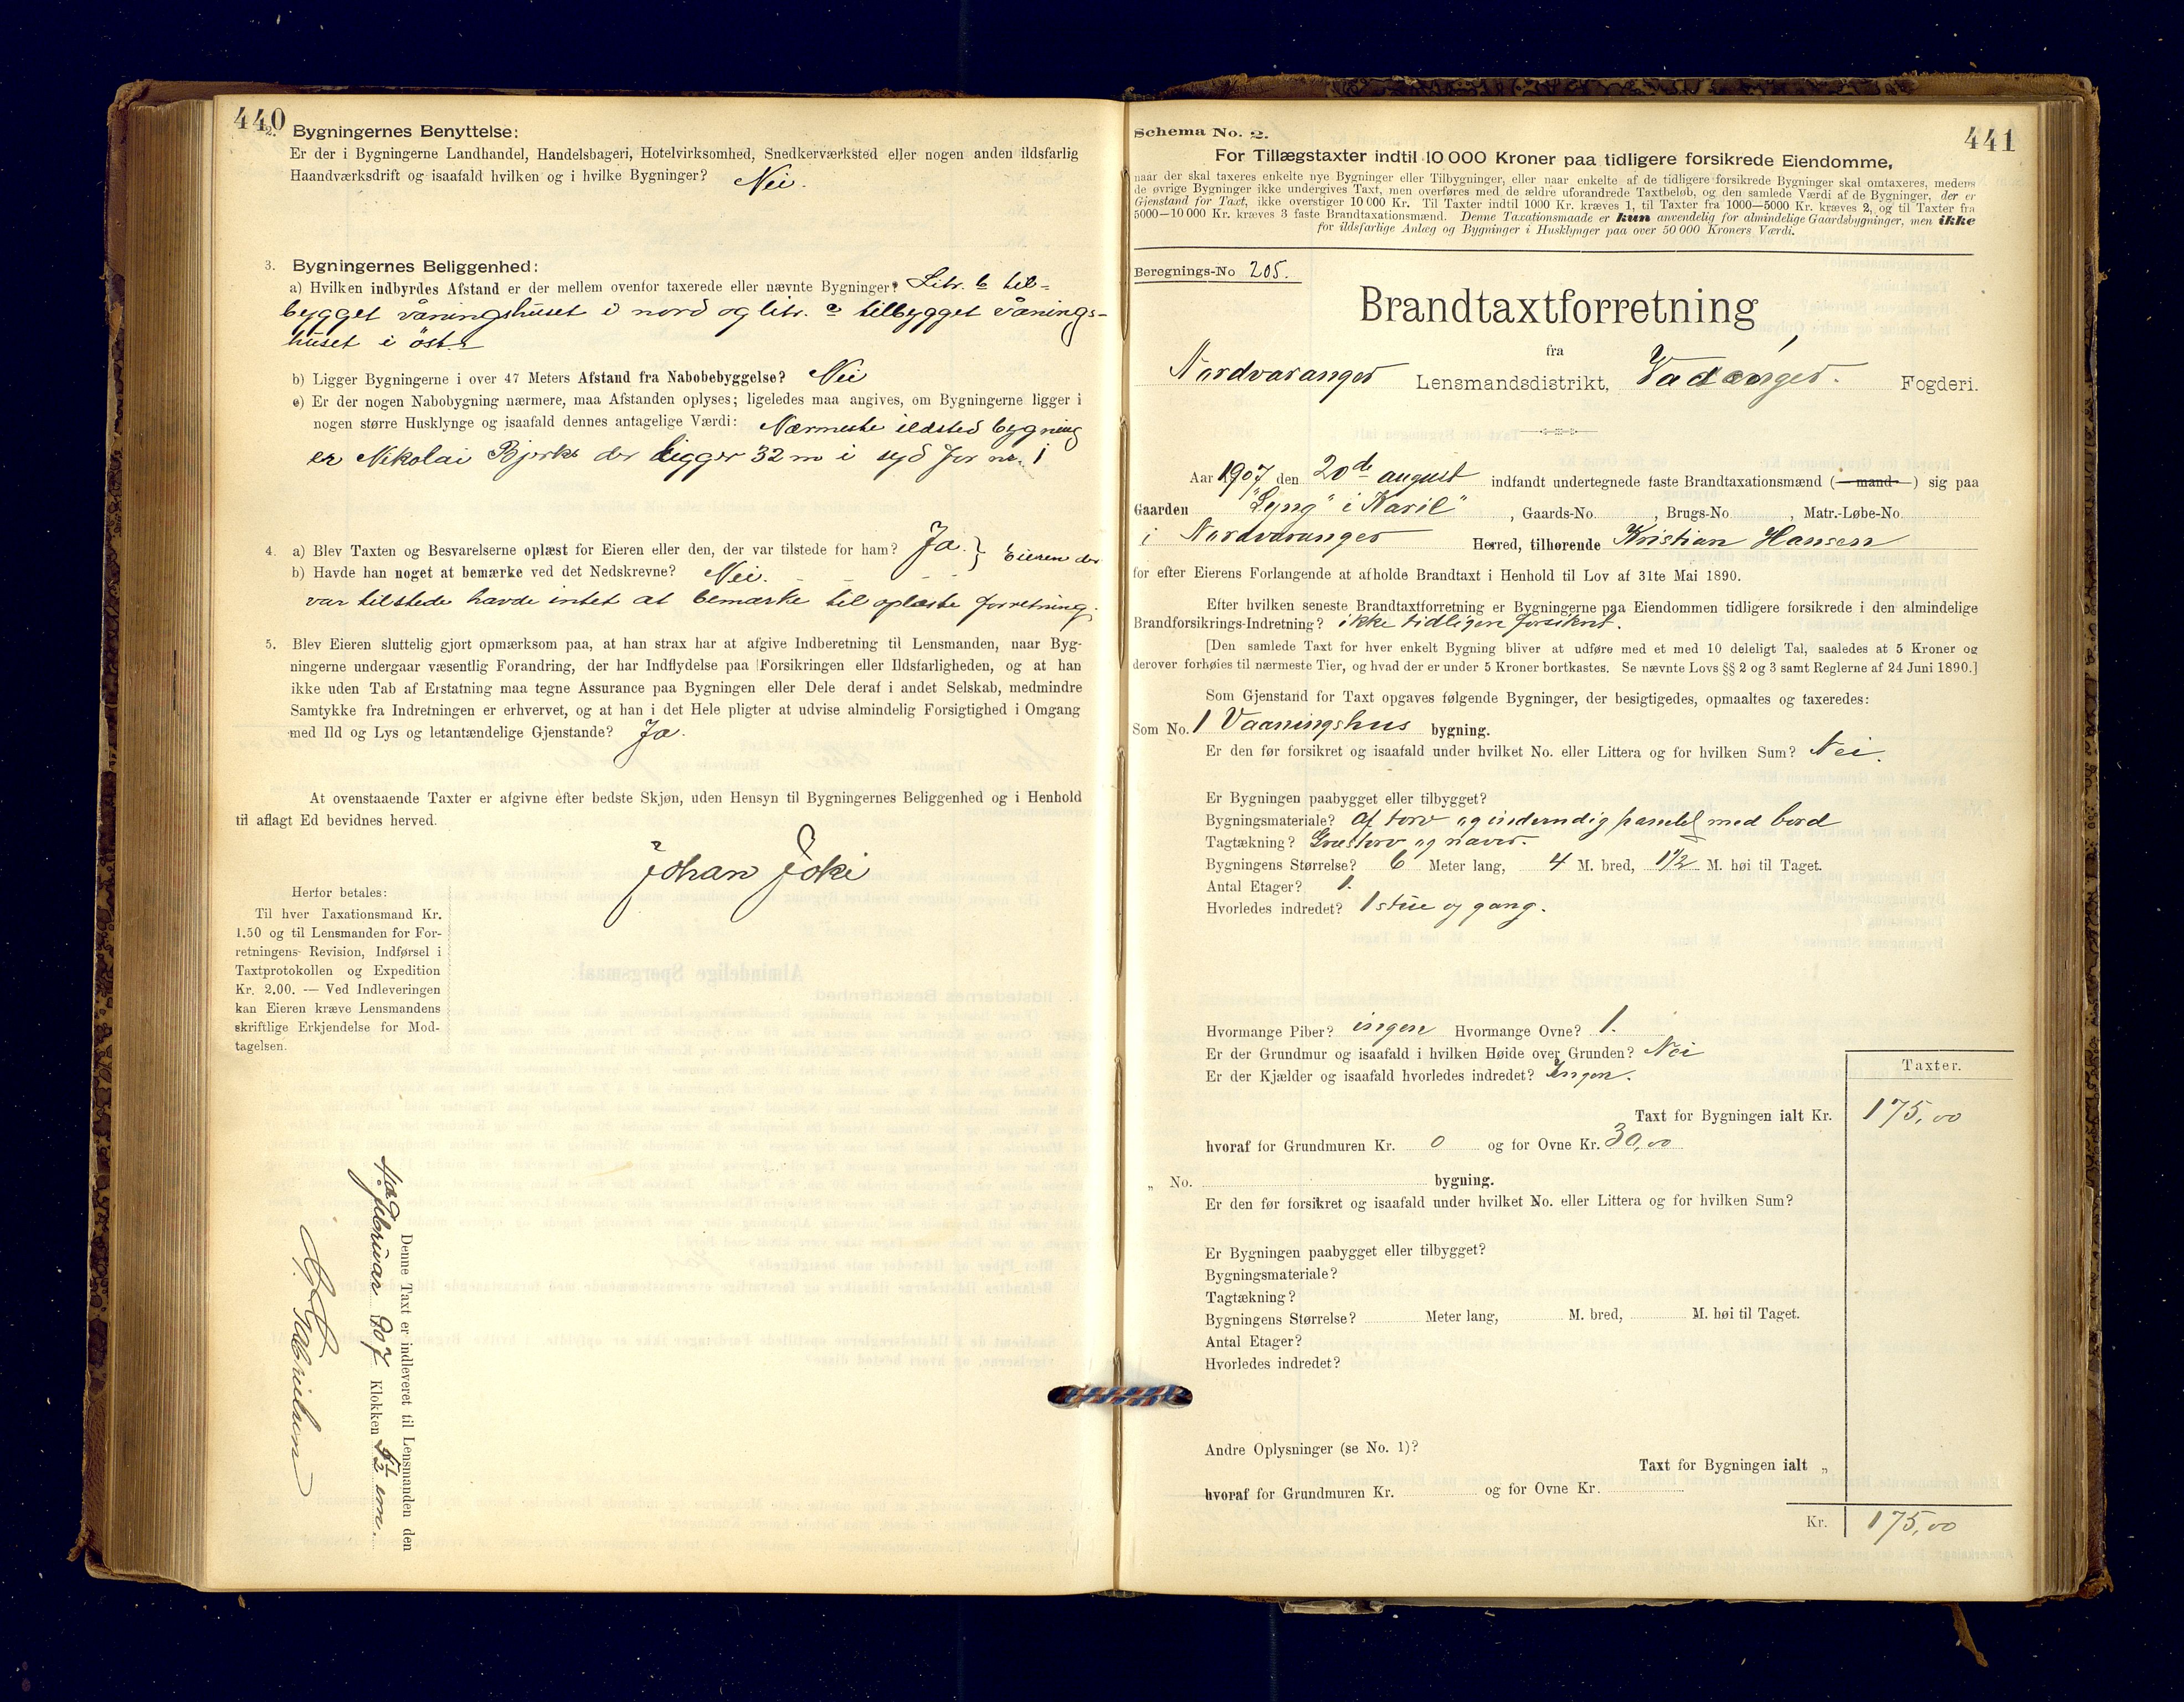 440
2. Bygningernes Benyttelse:
Er der i Bygningerne Landhandel, Handelsbageri, Hotelvirksomhed, Snedkerværksted eller nogen anden ildsfarlig
Haandværksdrift og isaafald hvilken og i hvilke Bygninger? Nei.
3. Bygningernes Beliggenhed:
a) Hvilken indbyrdes Afstand er der mellem ovenfor taxerede eller nævnte Bygninger? Litr. b til-
bygget våningshuset i nord og litr. a tilbygget vånings-
huset i öst.
b) Ligger Bygningerne i over 47 Meters Afstand fra Nabobebyggelse? Nei
c) Er der nogen Nabobygning nærmere, maa Afstanden oplyses; ligeledes maa angives, om Bygningerne ligger i
nogen større Husklynge og isaafald dennes antagelige Værdi: Nærmeste ildsted bygning
er Nikolai Bjerks der ligger 32 m i syd for nr. 1
4. a) Blev Taxten og Besvarelserne oplæst for Eieren eller den, der var tilstede for ham? Ja. } Eieren der
b) Havde han noget at bemærke ved det Nedskrevne? Nei.
var tilstede havde intet at bemærke til oplæste forretning.
5. Blev Eieren sluttelig gjort opmærksom paa, at han strax har at afgive Indberetning til Lensmanden, naar Byg-
ningerne undergaar væsentlig Forandring, der har Indflydelse paa Forsikringen eller Ildsfarligheden, og at han
ikke uden Tab af Erstatning maa tegne Assurance paa Bygningen eller Dele deraf i andet Selskab, medmindre
Samtykke fra Indretningen er erhvervet, og at han i det Hele pligter at udvise almindelig Forsigtighed i Omgang
med Ild og Lys og letantændelige Gjenstande? Ja.
At ovenstaaende Taxter er afgivne efter bedste Skjøn, uden Hensyn til Bygningernes Beliggenhed og i Henhold
til aflagt Ed bevidnes herved.
Johan Joki
Herfor betales:
Til hver Taxationsmand Kr.
1.50 og til Lensmanden for For-
retningens Revision, Indførsel i
Taxtprotokollen og Expedition
Kr. 2,00. — Ved Indleveringen
kan Eieren kræve Lensmandens
skriftlige Erkjendelse for Mod-
tagelsen.
Denne Taxt er indleveret til Lensmanden den
4de februar 907 Klokken 5½ em.
Gabrielsen
441
Schema No. 2.
For Tillægstaxter indtil 10 000 Kroner paa tidligere forsikrede Eiendomme,
naar der skal taxeres enkelte nye Bygninger eller Tilbygninger, eller naar enkelte af de tidligere forsikrede Bygninger skal omtaxeres, medens
de øvrige Bygninger ikke undergives Taxt, men overføres med de ældre uforandrede Taxtbeløb, og den samlede Værdi af de Bygninger, der er
Gjenstand for Taxt, ikke overstiger 10 000 Kr. Til Taxter indtil 1000 Kr. kræves 1, til Taxter fra 1000—5000 Kr. kræves 2, og til Taxter fra
5000—10 000 Kr. kræves 3 faste Brandtaxationsmænd. Denne Taxationsmaade er kun anvendelig for almindelige Gaardsbygninger, men ikke
for ildsfarlige Anlæg og Bygninger i Husklynger paa over 50 000 Kroners Værdi.
Beregnings-No 205.
Brandtaxtforretning
fra
Nordvaranger Lensmandsdistrikt, Fogderi.
Aar 1907 den 20de august indfandt undertegnede faste Brandtaxationsmænd (mand) sig paa
Gaarden "Lyng" i Karil" , Gaards-No , Brugs-No , Matr.-Løbe-No.
i Nordvaranger Herred, tilhørende Kristian Hansen
for efter Eierens Forlangende at afholde Brandtaxt i Henhold til Lov af 31te Mai 1890.
Efter hvilken seneste Brandtaxtforretning er Bygningerne paa Eiendommen tidligere forsikrede i den almindelige
Brandforsikrings-Indretning? ikke tidligere forsikret.
[Den samlede Taxt for hver enkelt Bygning bliver at udføre med et med 10 deleligt Tal, saaledes at 5 Kroner og
derover forhøies til nærmeste Tier, og hvad der er under 5 Kroner bortkastes. Se nævnte Lovs §§ 2 og 3 samt Reglerne af 24 Juni 1890.]
Som Gjenstand for Taxt opgaves følgende Bygninger, der besigtigedes, opmaaltes og taxeredes:
Som No. 1 Vaaningshus bygning.
Er den før forsikret og isaafald under hvilket No. eller Littera og for hvilken Sum? Nei.
Er Bygningen paabygget eller tilbygget?
Bygningsmateriale? af torv og indvendig panelet med bord
Tagtækning? Græstorv og næver.
Bygningens Størrelse? 6 Meter lang, 4 M. bred, 1½ M. høi til Taget.
Antal Etager? 1.
Hvorledes indredet? 1 stue og gang.
Hvormange Piber? ingen Hvormange Ovne? 1.
Er der Grundmur og isaafald i hvilken Høide over Grunden? Nei
Er der Kjælder og isaafald hvorledes indredet? Ingen.
Taxter.
Taxt for Bygningen ialt Kr. 175,00
hvoraf for Grundmuren Kr. 0 og for Ovne Kr. 30,00
„ No. bygning.
Er den før forsikret og isaafald under hvilket No. eller Littera og for hvilken Sum?
Er Bygningen paabygget eller tilbygget?
Bygningsmateriale?
Tagtækning?
Bygningens Størrelse? Meter lang, M. bred, M. høi til Taget.
Antal Etager?
Hvorledes indredet?
Andre Oplysninger (se No. 1)?
Taxt for Bygningen ialt „
hvoraf for Grundmuren Kr. og for Ovne Kr.
Kr. 175,00